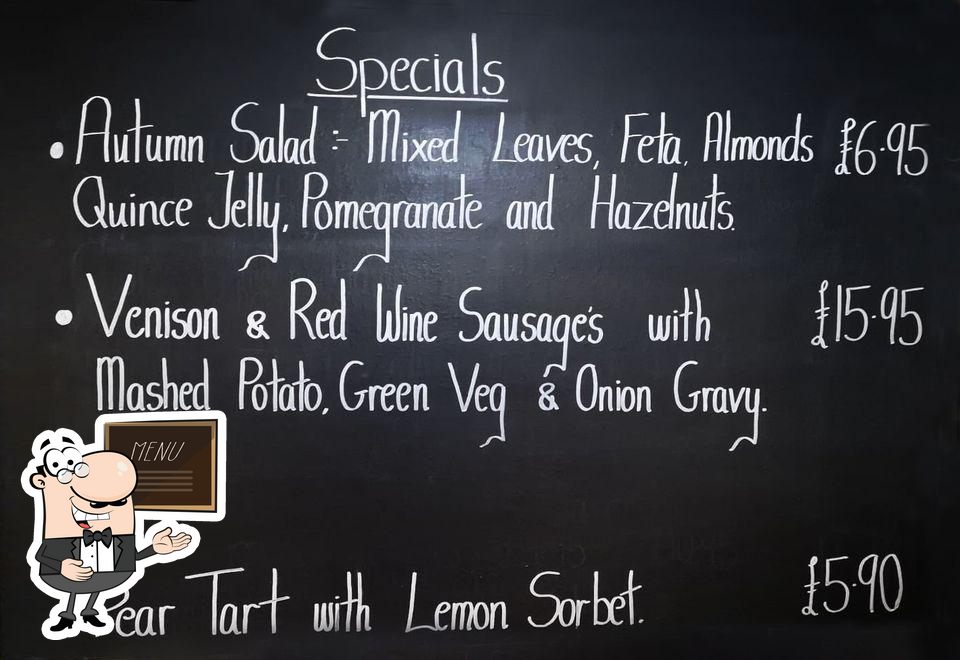 Specials
• Autumn Salad :- Mixed Leaves, Feta, Almonds £6.95
Quince Jelly, Pomegranate and Hazelnuts.
• Venison & Red Wine Sausage's with £15.95
Mashed Potato, Green Veg & Onion Gravy.
MENU
Pear Tart with Lemon Sorbet. £5.90